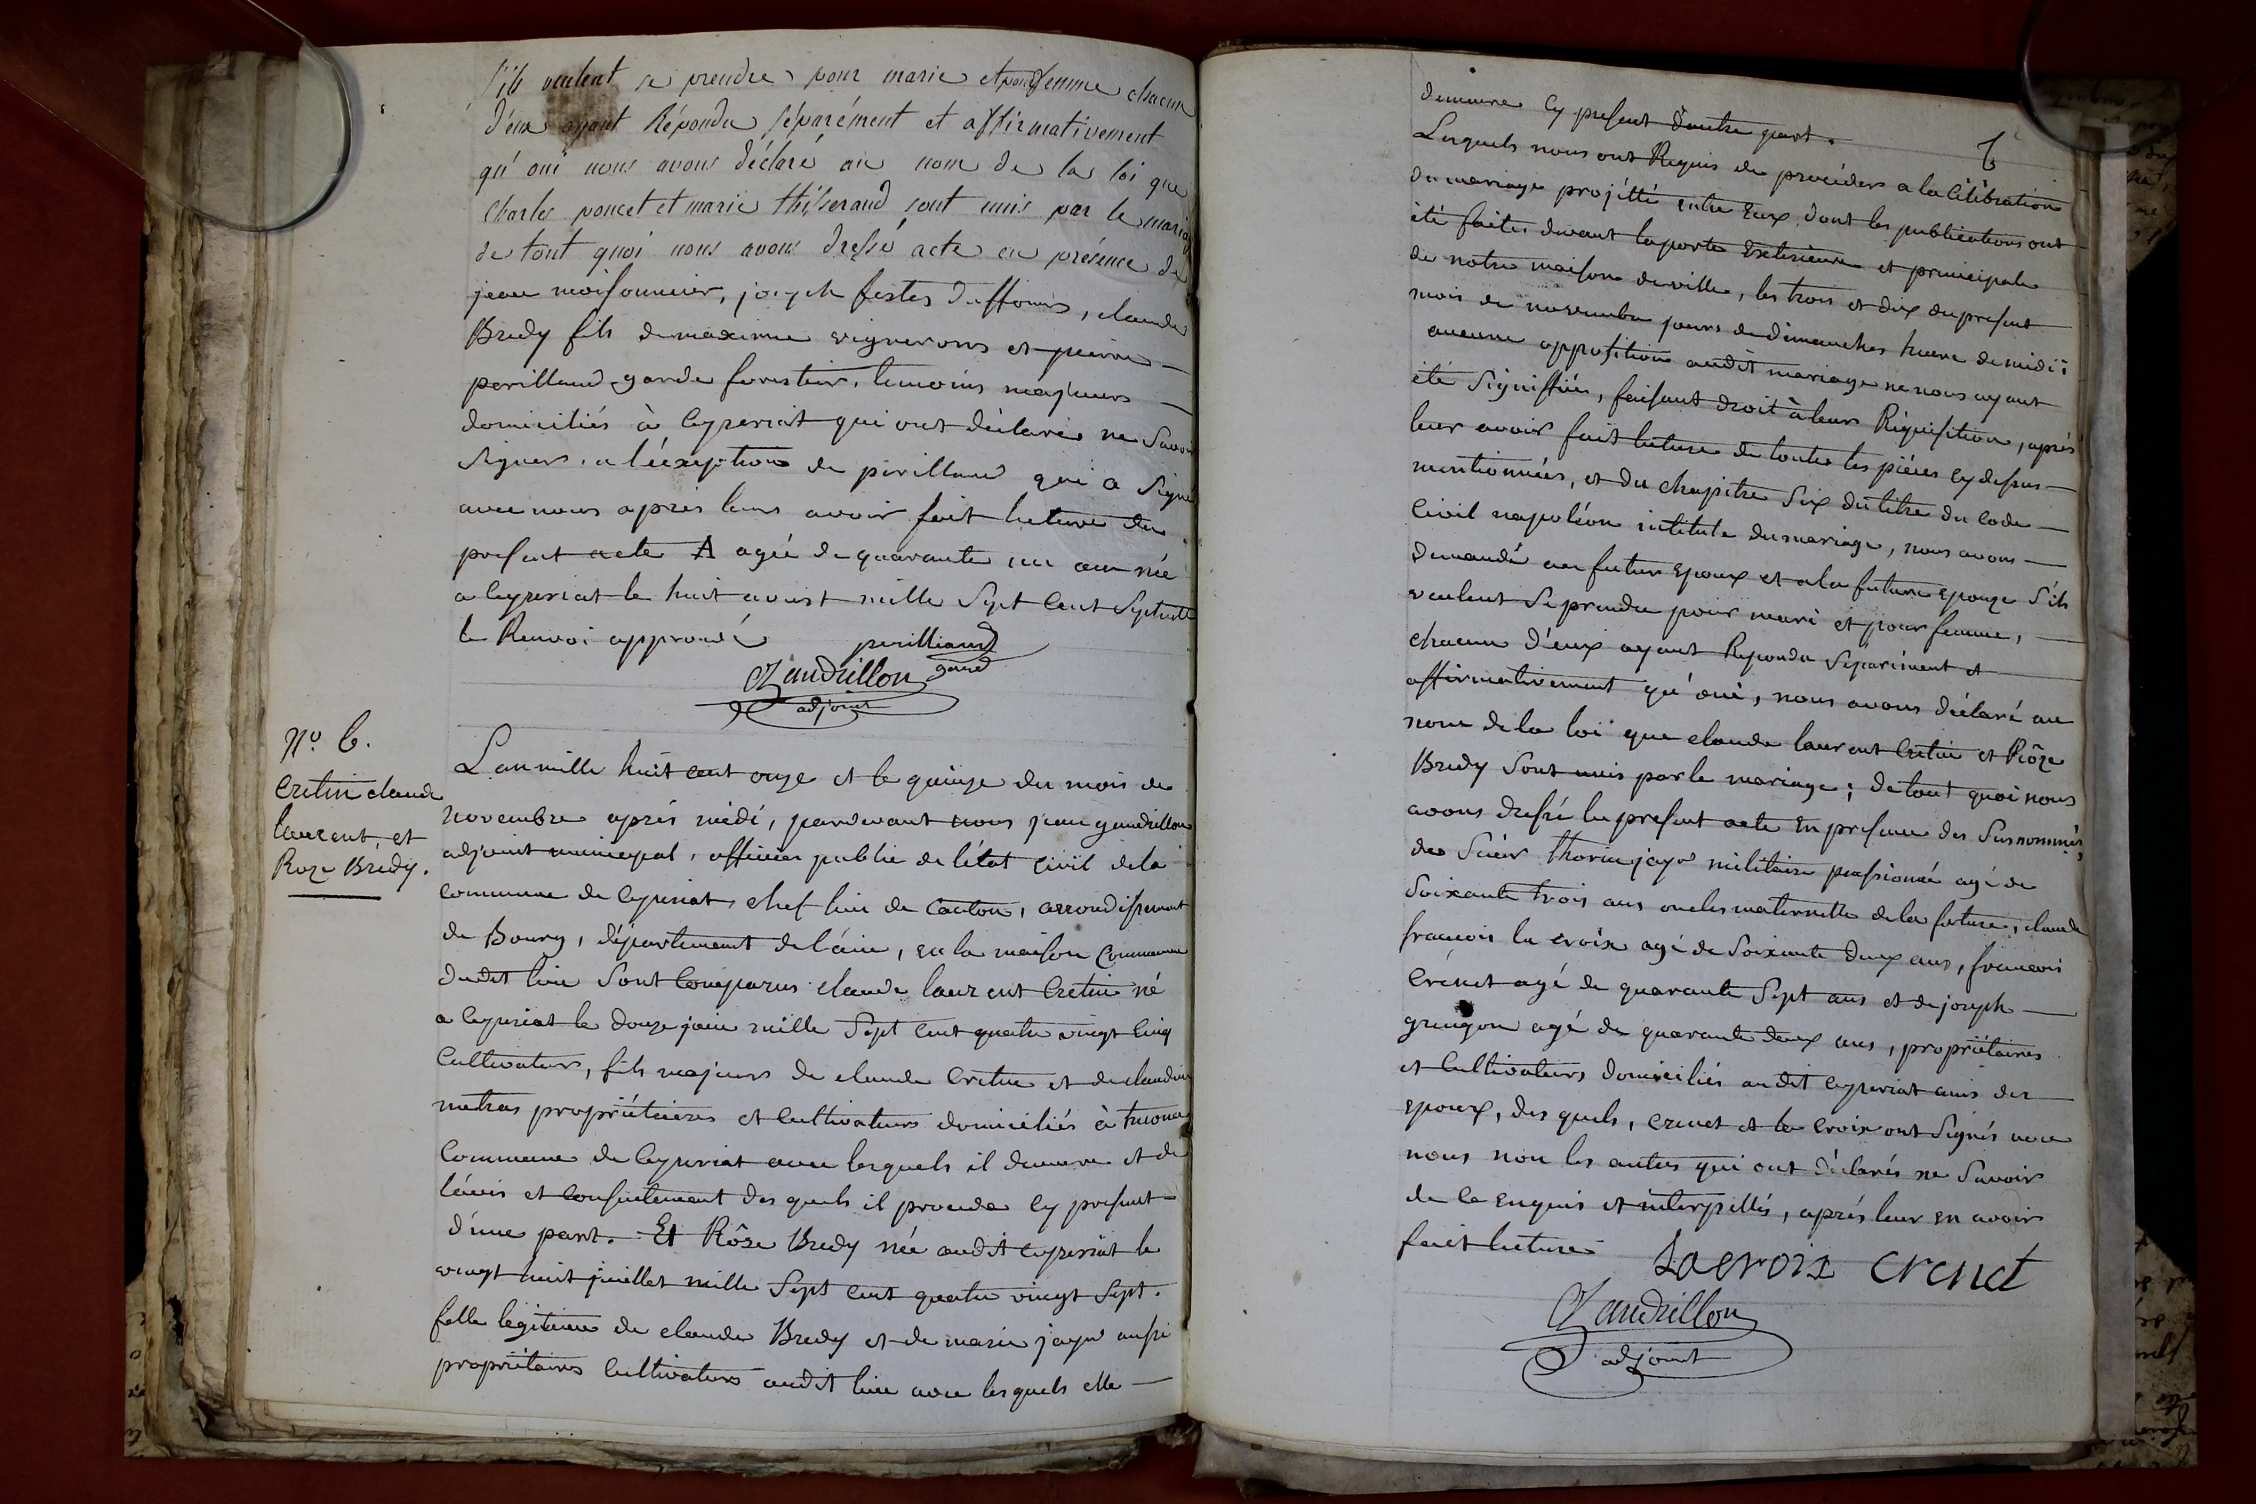 s'ils veulent se prendre pour marie et pour femme chacun
d'eux ayant Répondu séparément et affirmativement
qu'oui nous avons déclaré au nom de la loi que
Charles poncet et marie thisserand sont unis par le mariage
de tout quoi nous avons dressé acte en présence de
jean moissonnier, joseph festes Duffour, claude
Bredy fils de maxime vignerons et pierre
perilliaud garde forestier, temoins majeurs
domiciliés à Ceyzeriat qui ont déclaré ne savoir
signer, a l'éxception de perilliaud qui a signé
avec nous après leurs avoir fait lecture du
present acte A agée de quarante un an née
a Ceyzeriat le huit avust mille sept cent septente
le Renvoi approuvé perilliaud
garde
Gandrillon
adjoint
No. 6.
Cretin claude
laurent, et
Roze Bredy.
L'an mille huit cent onze et le quinze du mois de
novembre après midi, pardevant nous jean gandrillon
adjoint municipal, officier public de l'état civil de la
commune de Ceyzeriat, chef lieu de canton, arrondissement
de Bourg, département de l'ain, en la maison Commune
dudit lieu sont comparus claude laurent Cretin né
a Ceyzeriat le douze juin mille sept cent quatre vingt cinq
Cultivateur, fils majeur de claude Cretin et de claudine
metras propriétaires et cultivateurs domiciliés à
Commune de Ceyzeriat avec lesquels il demeure et de
l'avis et consentement des quels il procede cy present
d'une part. Et Rôze Bredy née audit Ceyzeriat le
vingt huit juillet mille sept cent quatre vingt sept.
fille légitime de claude Bredy et de marie jayr aussi
propriétaires cultivateurs audit lieu avec lesquels elle
demeure cy present d'autre part.
6
Lesquels nous ont Requis de procéder a la Célébration
du mariage projetté entre Eux, dont les publications ont
été faites devant la porte Extérieure et principale
de notre maison de ville, les trois et dix du present
mois de novembre jours de dimanches heure de midi;
aucune opposition audit mariage ne nous ayant
été signiffiée, faisant droit à leur Réquisition, après
leur avoir fait lecture de toutes les piéces cy dessus
mentionnées, et du chapitre six du titre du Code
Civil napoléon intitulé du mariage, nous avons
demandé au futur Epoux et a la future Epouze s'ils
veulent se prendre pour mari et pour femme,
chacun d'eux ayant Repondu séparément et
affirmativement qu'oui, nous avons déclaré au
nom de la loi que claude laurent Cretin et Rôze
Bredy sont unis par le mariage; de tout quoi nous
avons dressé le present acte En presence des susnommés,
de Sieur jayr militaire pensionné agé de
soixante trois ans oncles maternelle de la future, claude
françois la croix agé de soixante deux ans, françois
Crénet agé de quarante sept ans et de joseph
grengon agé de quarante deux ans, propriétaires
et cultivateurs domiciliés audit Ceyzeriat amis des
Epoux, des quels, crenet et la croix ont signés avec
nous non les autres qui ont déclarés ne savoir
de ce enquis et interpellés, après leur en avoir
fait lecture
Lacroix Crenet
Gandrillon
adjoint